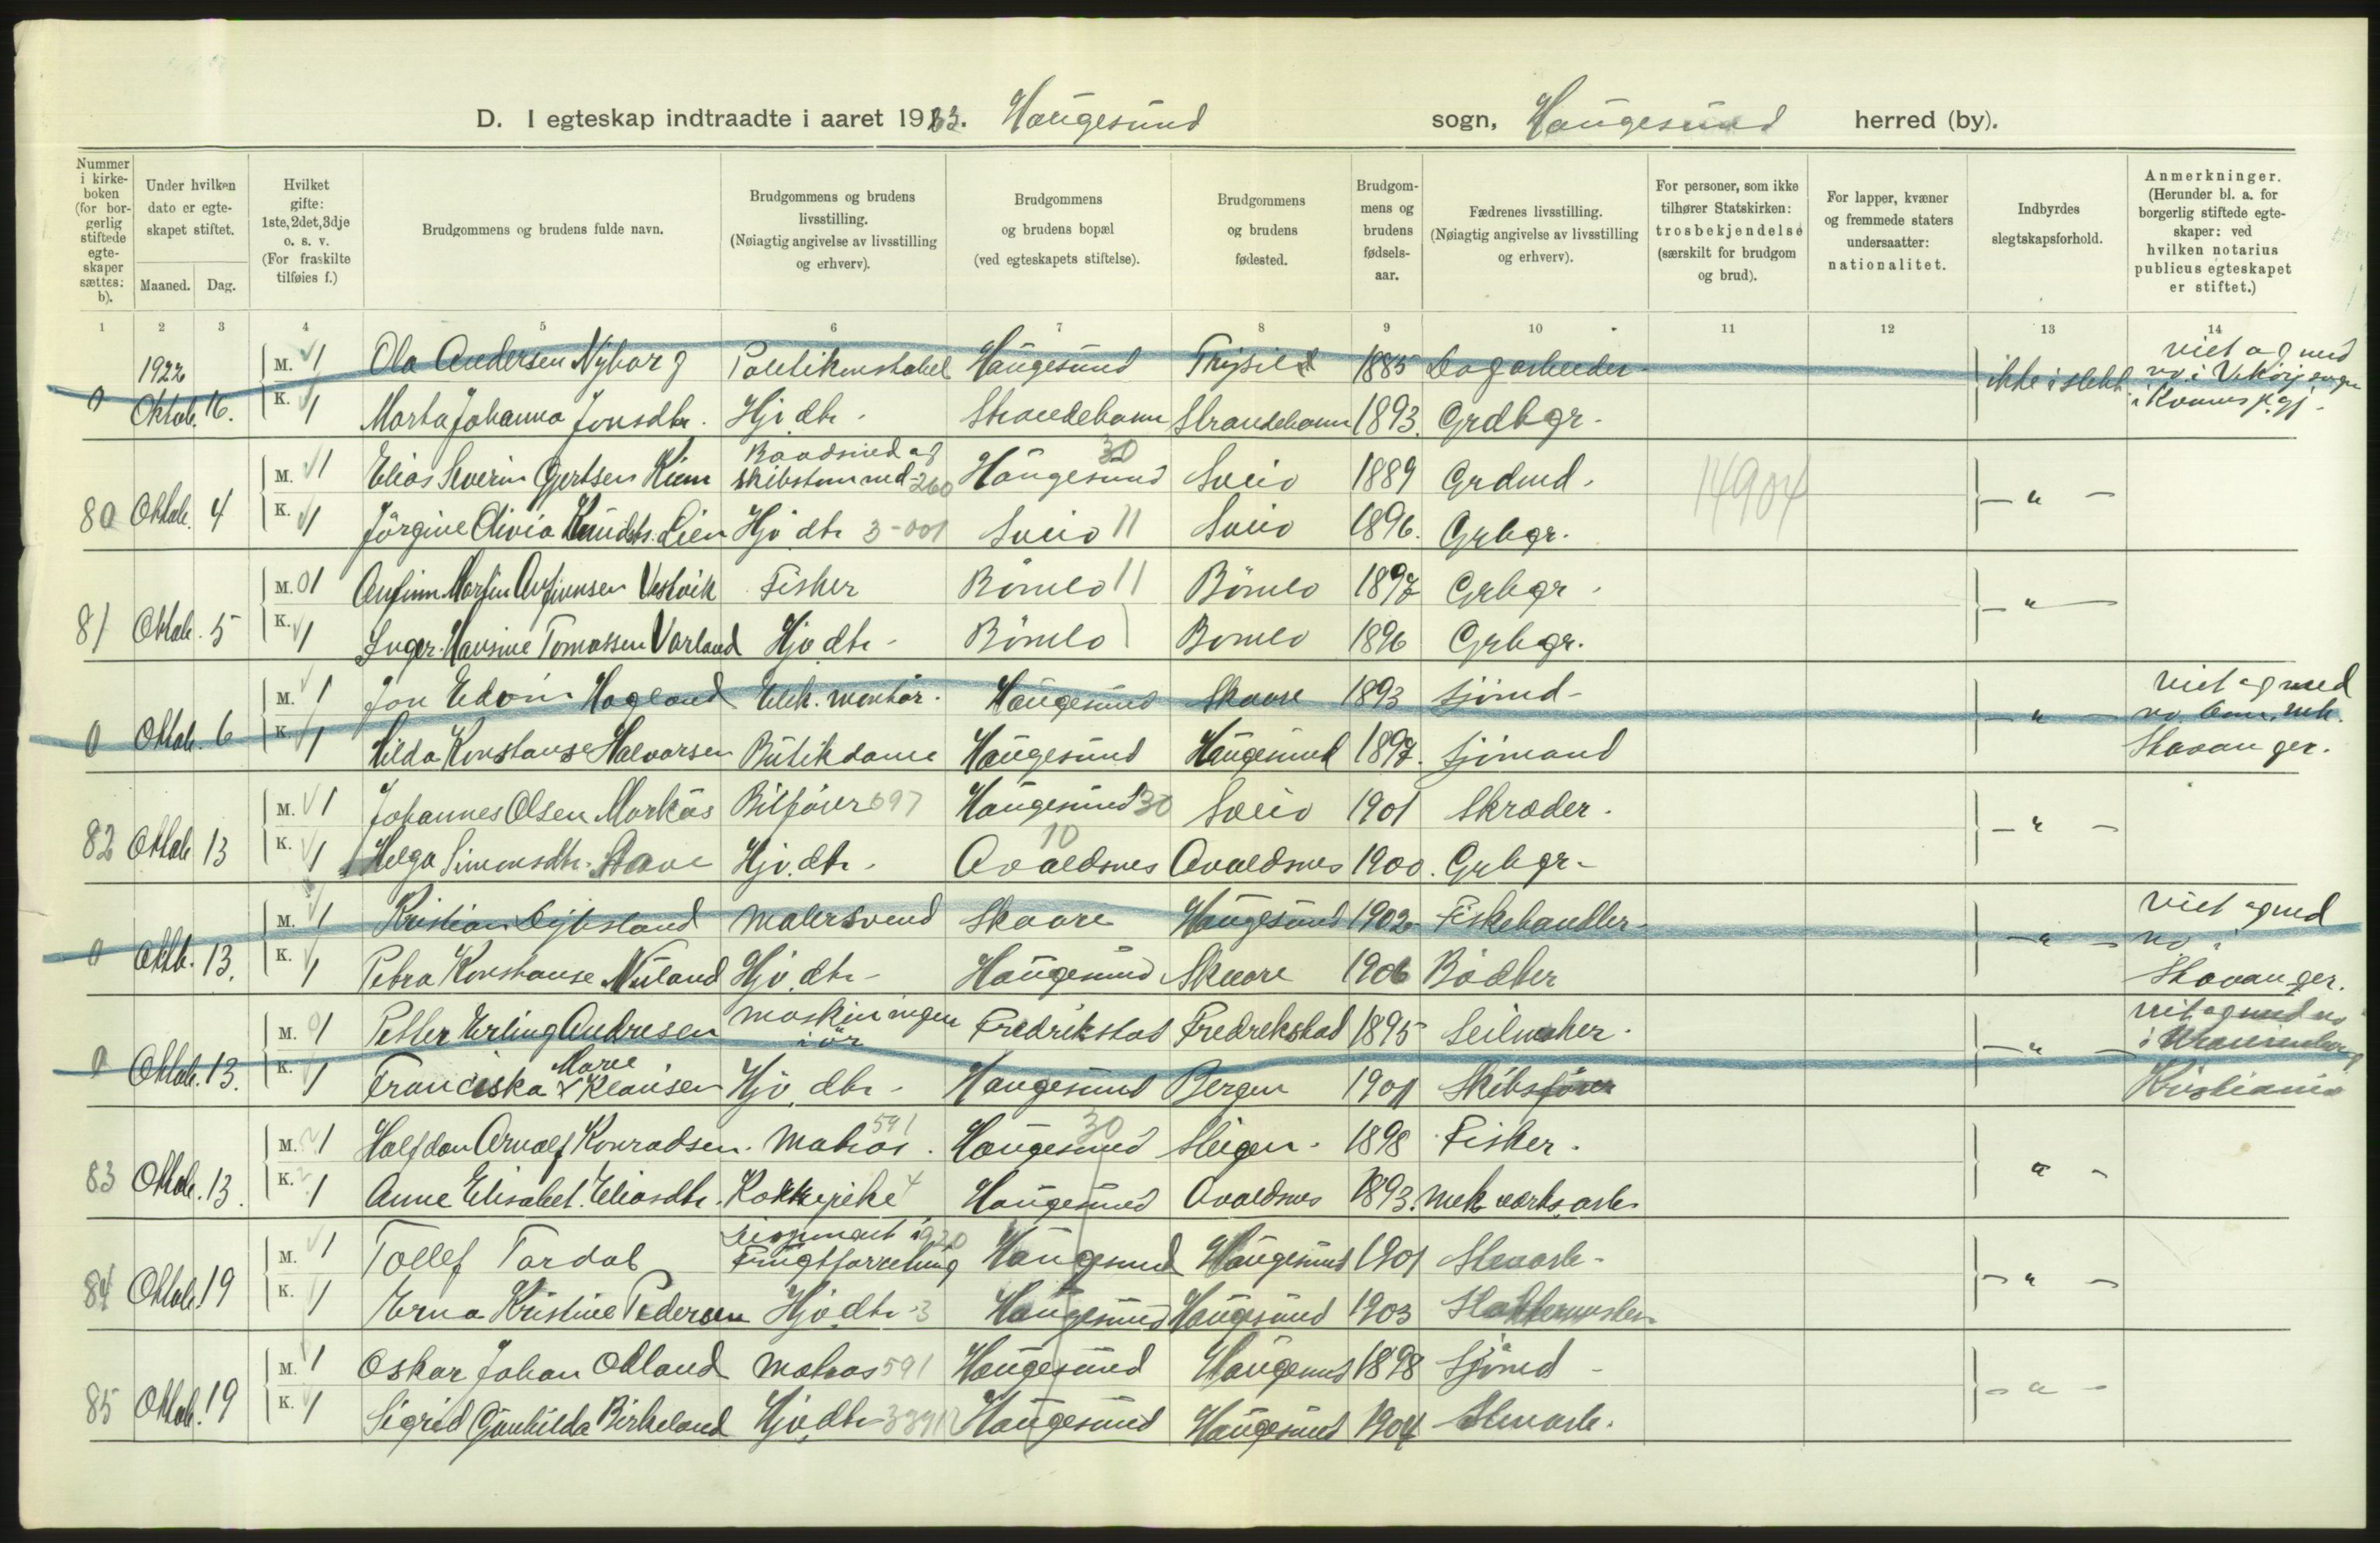 D. I egteskap indtraadte i aaret 1923. Haugesund sogn, Haugesund herred (by).
Nummer i kirke-boken (for bor-gerlig stiftede egte-skaper sættes: b).
Under hvilken dato er egte-skapet stiftet.
Maaned. Dag.
Hvilket gifte: 1ste, 2det, 3dje o. s. v. (For fraskilte tilføies f.)
Brudgommens og brudens fulde navn.
Brudgommens og brudens livsstilling. (Nøiagtig angivelse av livsstilling og erhverv).
Brudgommens og brudens bopæl (ved egteskapets stiftelse).
Brudgommens og brudens fødested.
Brudgom-mens og brudens fødsels-aar.
Fædrenes livsstilling. (Nøiagtig angivelse av livsstilling og erhverv).
For personer, som ikke tilhører Statskirken: trosbekjendelse (særskilt for brudgom og brud).
For lapper, kvæner og fremmede staters undersaatter: nationalitet.
Indbyrdes slegtskapsforhold.
Anmerkninger. (Herunder bl. a. for borgerlig stiftede egte-skaper: ved hvilken notarius publicus egteskapet er stiftet.)
1 2 3 4 5 6 7 8 9 10 11 12 13 14
1922
M. 1 Ola Andersen Nyborg Politikonstabel Haugesund Trysil 1885 Dagarbeider ikke i slekt
0 Oktob. 16. K. 1 Marta Johanna Jonsdtr. Hjv. dtr. Strandebarm Strandebarm 1893. Grdbgr.
M. 1 Elias Severin Gertsen Baadsmed og skibstømmed 260 Haugesund 30 Sveio 1889 Grdmd.
80 Oktob. 4 K. 1 Jörgine Olivia Knudsdtr. Lien Hjv dtr 3-001 Sveio 11 Sveio 1896. Grbgr. 14904 - " -
M. 1 Anfinn Martin Anfinnsen Vestvik Fisker Bömlo 11 Bömlo 1897 Grbgr.
81 Oktob. 5 K. 1 Inger Hansine Tomassen Vorland Hjv dtr - Bömlo Bömlo 1896 Grbgr. - " -
M. 1 Jon Edvin Hagland Elek. montör. Haugesund Skaare 1893 Sjömd - viet og med
0 Oktob. 6 K. 1 Hilda Konstanse Halvorsen Butikdame Haugesund Haugesund 1897. Sjömand - " - Stavanger.
M. 1 Johannes Olsen Markås Bilförer 697 Haugesund 30 Sveio 1901 Skræder.
82 Oktob 13 K. 1 Helga Simonsdtr. Stave Hjv. dtr. 10 Avaldsnes Avaldsnes 1900. Grbgr - " -
M. 1 Kristian Malersvend Skaare Haugesund 1902 Fiskehandler - viet og med
0 Oktb. 13. K. 1 Petra Konstanse Nuland Hjv. dtr - Haugesund Skaare 1906 Bödker - " - Stavanger.
M. 1 Petter Erling Andresen maskiningeniör Fredrikstad Fredrekstad 1895 Seilmaker.
0 Oktob. 13. K. 1 Franciska Marie Klausen Hjv. dtr - Haugesund Bergen 1901 Skibsförer - " - i Uranienborg Kristiania
M. 1 Halfdan Arnolf Konradsen. Matros 591. Haugesund 30 Steigen. 1898 Fisker.
83 Oktob. 13. K. 1 Anne Elisabet Eliasdtr. Kokkepike 4 Haugesund Avaldsnes 1893. mek værks.arb. " -
M. 1 Tollef Tardal Frugtforretning Haugesund Haugesund 1901
84 Oktob. 19 K. 1 Erna Kristine Pedersen Hjv. dtr 3 Haugesund Haugesund 1903 - " -
M. 1 Oskar Johan Økland Matros 591 Haugesund Haugesund 1898 Sjömd -
85 Oktob. 19 K. 1 Sigrid Gunhilda Birkeland Hjv. dtr Haugesund Haugesund 1904 - " -